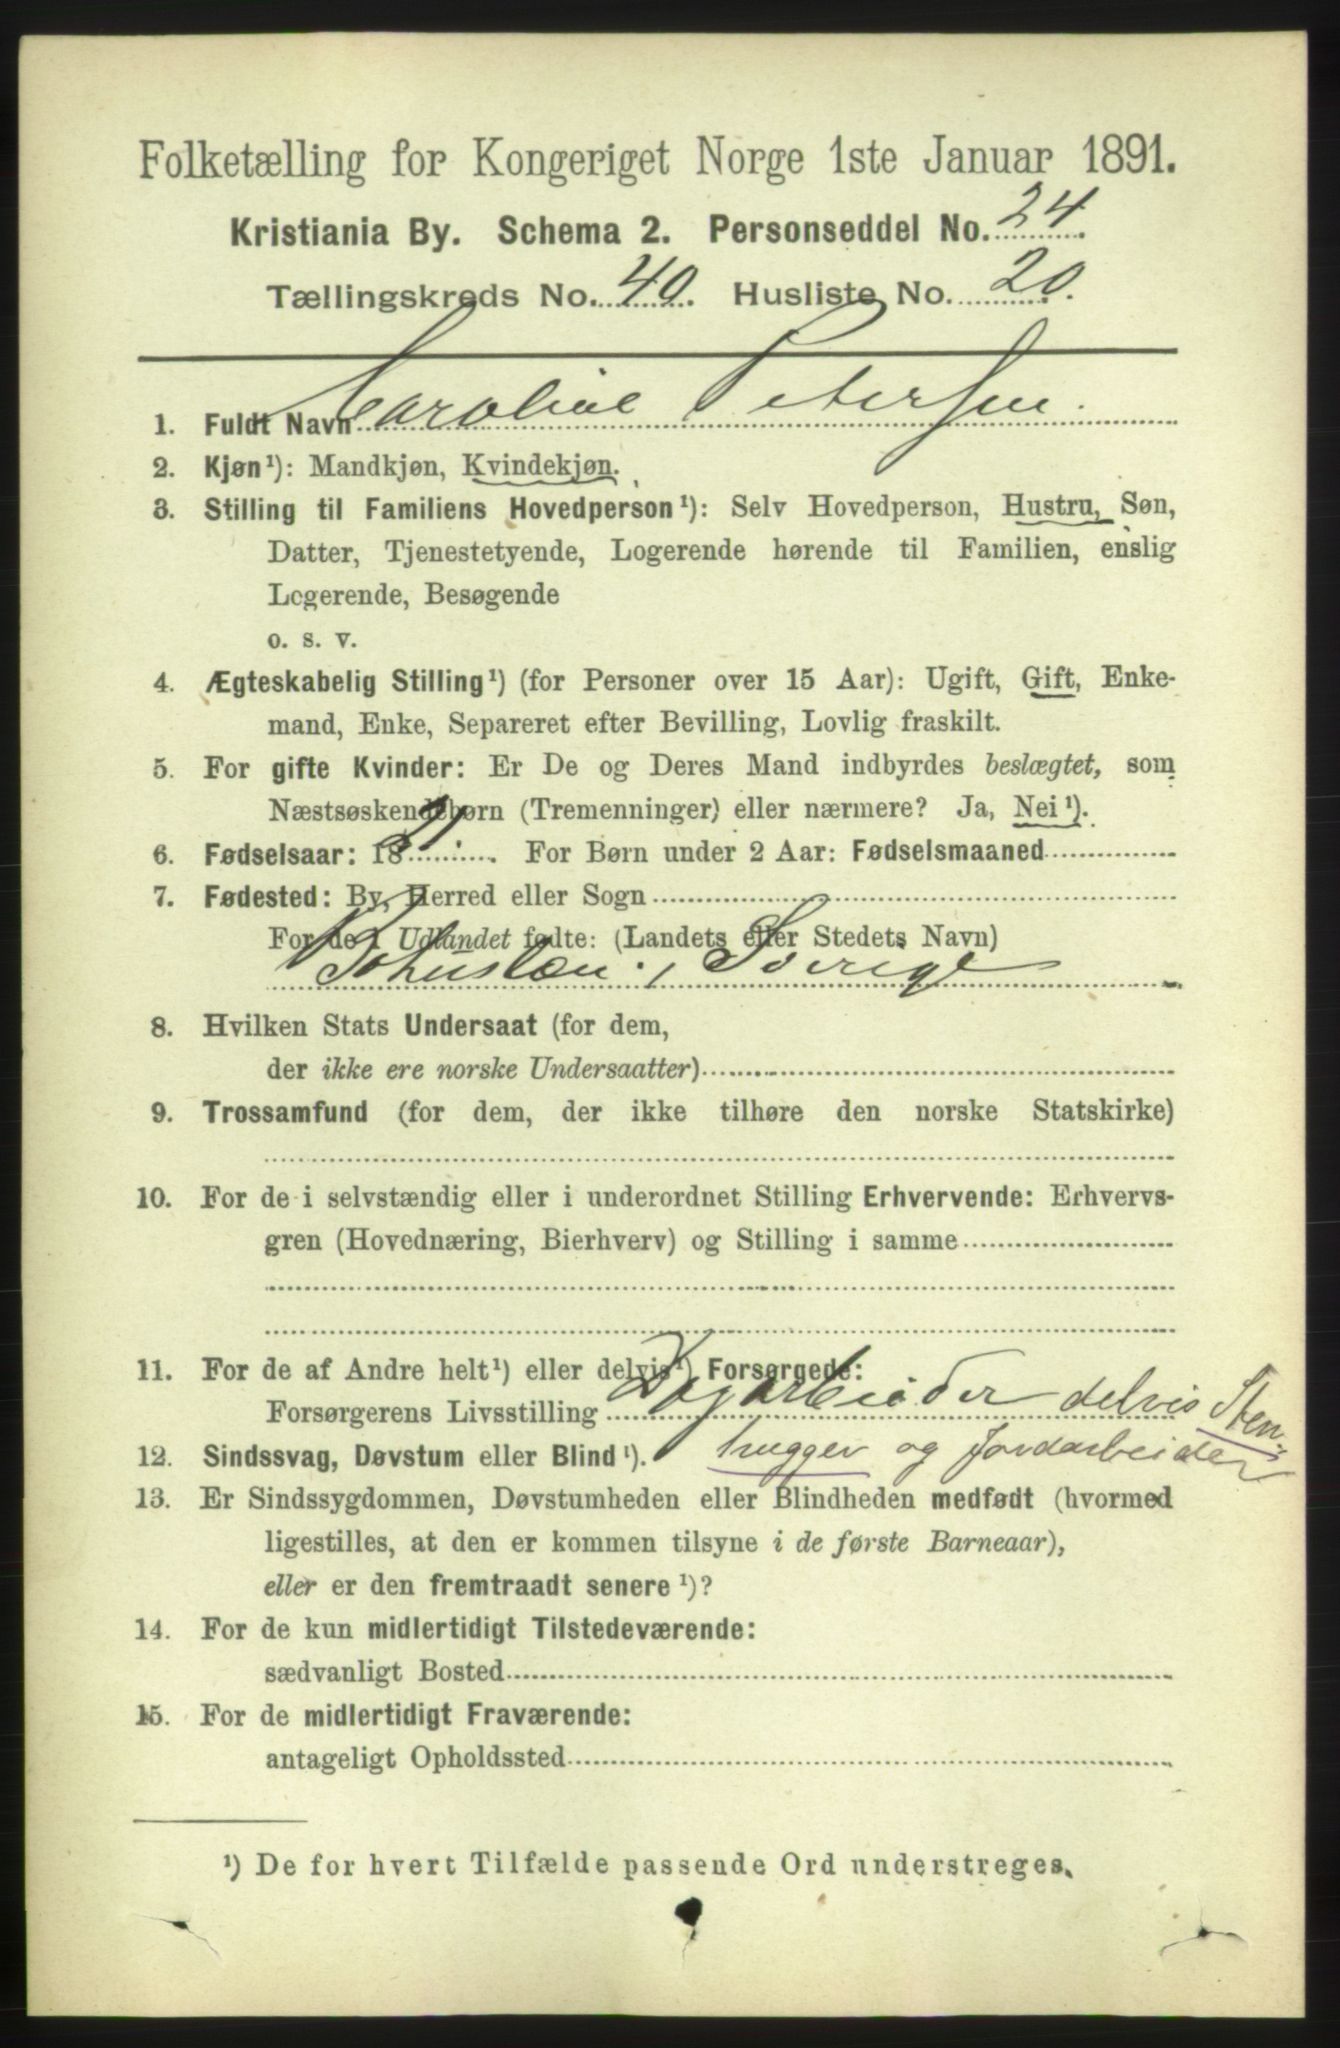 Folketælling for Kongeriget Norge 1ste Januar 1891.
Kristiania By. Schema 2. Personseddel No. 24
Tællingskreds No. 40. Husliste No. 20.
1. Fuldt Navn Caroline Petersen.
2. Kjøn¹): Mandkjøn, Kvindekjøn.
3. Stilling til Familiens Hovedperson¹): Selv Hovedperson, Hustru, Søn,
Datter, Tjenestetyende, Logerende hørende til Familien, enslig
Logerende, Besøgende
o. s. v.
4. Ægteskabelig Stilling¹) (for Personer over 15 Aar): Ugift, Gift, Enke-
mand, Enke, Separeret efter Bevilling, Lovlig fraskilt.
5. For gifte Kvinder: Er De og Deres Mand indbyrdes beslægtet, som
Næstsøskendebørn (Tremenninger) eller nærmere? Ja, Nei¹).
6. Fødselsaar: 18 . For Børn under 2 Aar: Fødselsmaaned
7. Fødested: By, Herred eller Sogn
For de i Udlandet fødte: (Landets eller Stedets Navn)
Bohuslæn i Sverige
8. Hvilken Stats Undersaat (for dem,
der ikke ere norske Undersaatter)
9. Trossamfund (for dem, der ikke tilhøre den norske Statskirke)
10. For de i selvstændig eller i underordnet Stilling Erhvervende: Erhvervs-
gren (Hovednæring, Bierhverv) og Stilling i samme
11. For de af Andre helt¹) eller delvis¹) Forsørgede:
Forsørgerens Livsstilling Dagarbeider delvis Sten-
hugger og Jordarbeider
12. Sindssvag, Døvstum eller Blind¹).
13. Er Sindssygdommen, Døvstumheden eller Blindheden medfødt (hvormed
ligestilles, at den er kommen tilsyne i de første Barneaar),
eller er den fremtraadt senere¹)?
14. For de kun midlertidigt Tilstedeværende:
sædvanligt Bosted
15. For de midlertidigt Fraværende:
antageligt Opholdssted
¹) De for hvert Tilfælde passende Ord understreges.